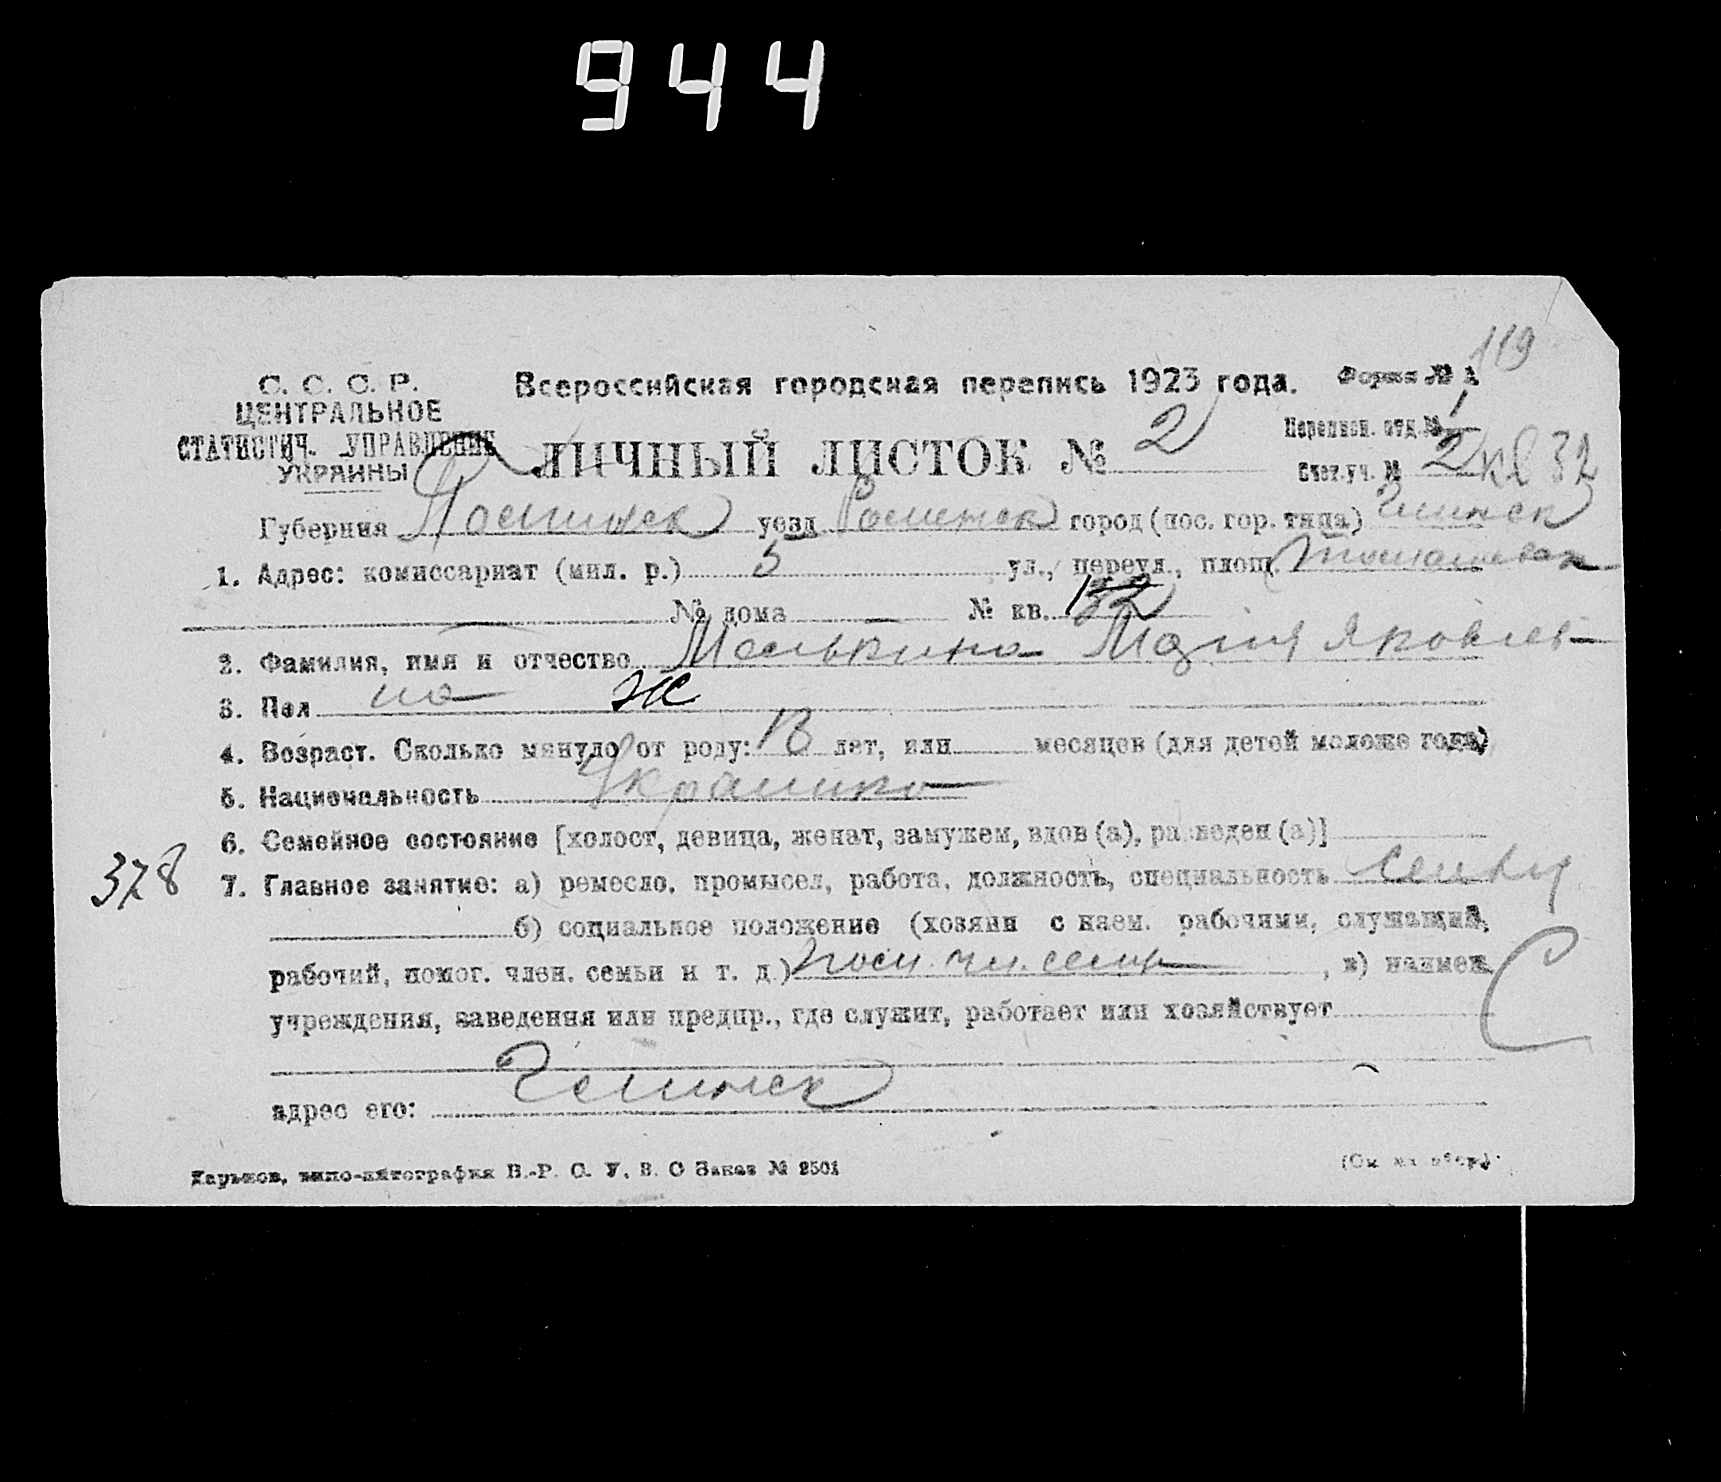 944
119
С. С. С. Р.
ЦЕНТРАЛЬНОЕ
СТАТИСТИЧ. УПРАВЛЕНИЕ
УКРАИНЫ
Всероссийская городская перепись 1923 года.
Форма № 1
ЛИЧНЫЙ ЛИСТОК № 2
Переписн. отд. № 1
Счет.-уч. № 2 кв 32
Губерния уезд Роменск город (пос. гор. типа)
1. Адрес: комиссариат (мил. р.) 5 ул., переул., площ.
№ дома — № кв. 132
2. Фамилия, имя и отчество Мария Яковлев-
3. Пол на Ж
4. Возраст. Сколько минуло от роду: 13 лет, или месяцев (для детей моложе года)
5. Национальность Украинка
6. Семейное состояние [холост, девица, женат, замужем, вдов (а), разведен (а)]
378
7. Главное занятие: а) ремесло, промысел, работа, должность, специальность
б) социальное положение (хозяин с наем. рабочими, служащий,
рабочий, помог. член. семьи и т. д.) пом. чл. семьи, в) наимен.
С
учреждения, заведения или предпр., где служит, работает или хозяйствует
адрес его:
Харьков, типо-литография В.-Р. С. У. В. О Заказ № 2501
(См. на обор.)